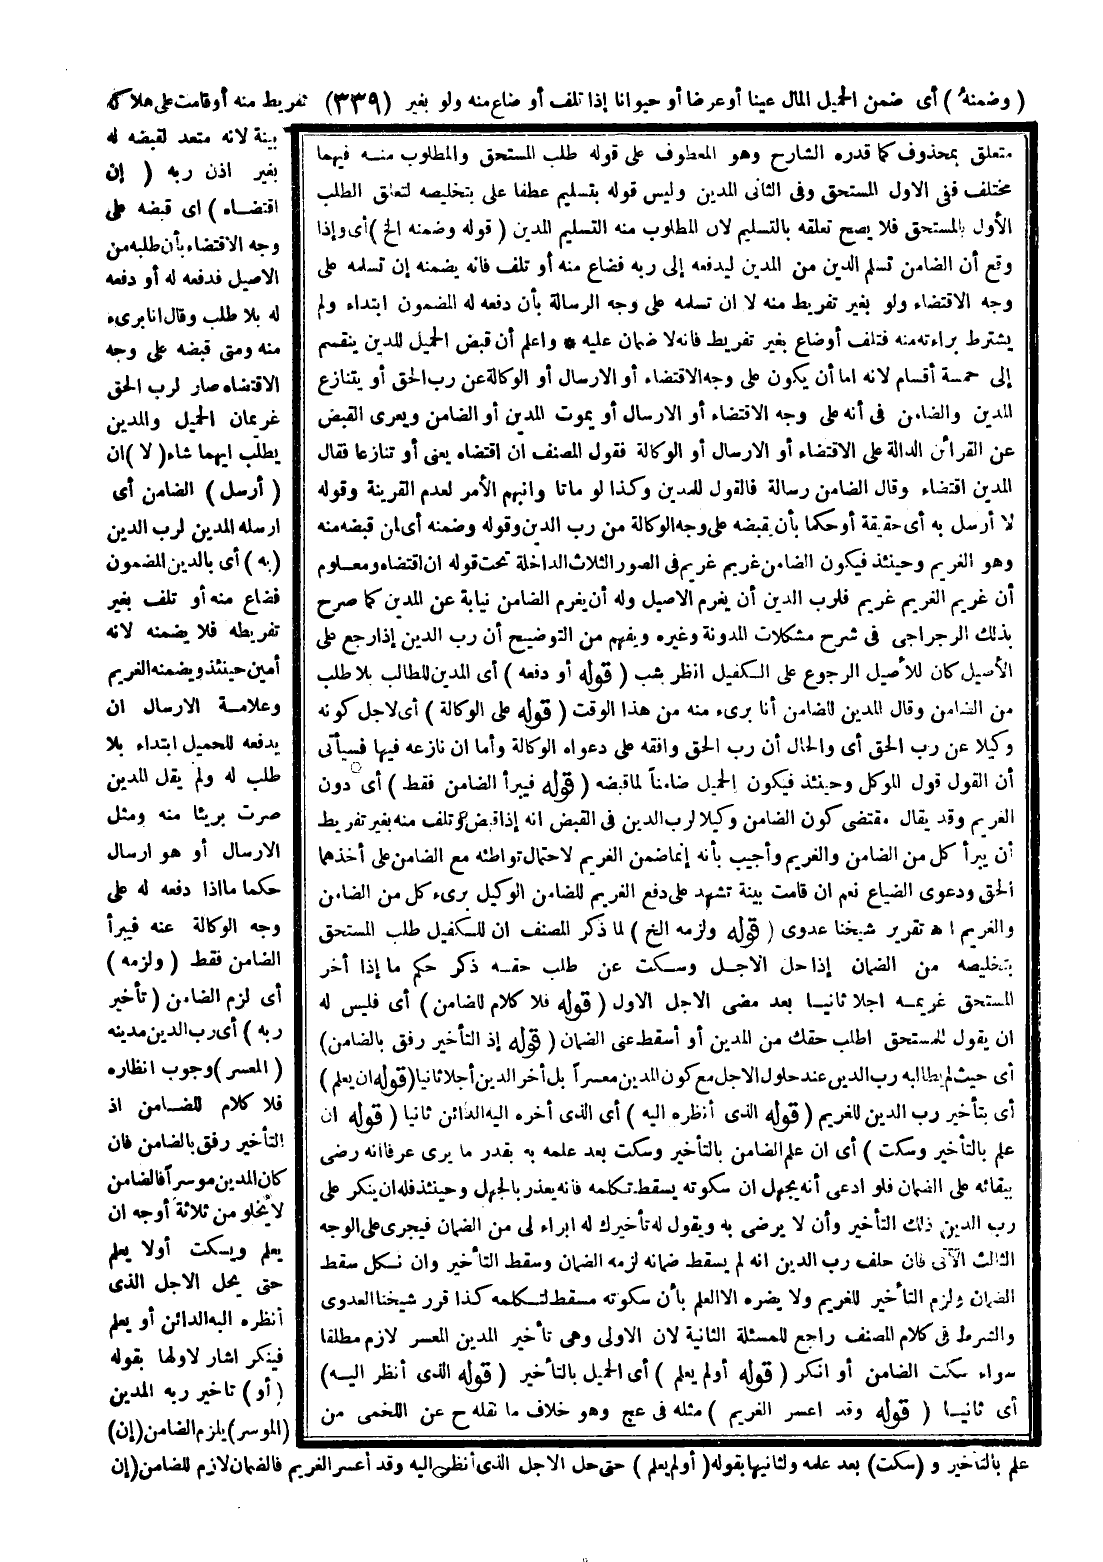 ( وضمنه ) أى ضمن الحميل المال عينا أو عرضا أو حيوانا إذا تلف أو ضاع منه ولو بغير (٣٣٩) تفريط منه أو قامت على هلاكه
بينة لانه متعد لقبضه له
بغير اذن ربه ( إن
اقتضاه ) اى قبضه على
وجه الاقتضاء بأن طلبه من
الاصيل فدفعه له أو دفعه
له بلا طلب وقال انا برىء
منه ومتى قبضه على وجه
الاقتضاء صار لرب الحق
غريمان الحميل والمدين
يطلب ايهما شاء ( لا ) ان
( أرسل ) الضامن أى
ارسله المدين لرب الدين
(به ) أى بالدين المضمون
فضاع منه أو تلف بغير
تفريطه فلا يضمنه لانه
أمين حينئذ ويضمنه الغريم
وعلامة الارسال ان
يدفعه للحميل ابتداء بلا
طلب له ولم يقل المدين
صرت بريئا منه ومثل
الارسال أو هو ارسال
حكما ما اذا دفعه له على
وجه الوكالة عنه فيبرأ
الضامن فقط ( ولزمه )
أى لزم الضامن ( تأخير
ربه ) أى رب الدين مدينه
( المعسر ) وجوب انظاره
فلا كلام للضامن اذ
التأخير رفق بالضامن فان
كان المدين موسرا فالضامن
لا يخلو من ثلاثة أوجه ان
يعلم ويسكت أولا يعلم
حتى يحل الاجل الذى
أنظره اليه الدائن أو يعلم
فينكر اشار لاولها بقوله
( أو ) تاخير ربه المدين
(الموسر) يلزم الضامن (إن)
علم بالتأخير و (سكت) بعد علمه ولثانيها بقوله ( أو لم يعلم ) حتى حل الاجل الذى أنظره اليه وقد أعسر الغريم فالضمان لازم للضامن (إن
متعلق بمحذوف كما قدره الشارح وهو المعطوف على قوله طلب المستحق والمطلوب منه فيهما
مختلف ففى الاول المستحق وفى الثانى المدين وليس قوله بتسليم عطفا على بتخليصه لتعلق الطلب
الأول بالمستحق فلا يصح تعلقه بالتسليم لان المطلوب منه التسليم المدين ( قوله وضمنه الخ ) أى وإذا
وقع أن الضامن تسلم الدين من المدين ليدفعه إلى ربه فضاع منه أو تلف فانه يضمنه إن تسلمه على
وجه الاقتضاء ولو بغير تفريط منه لا ان تسلمه على وجه الرسالة بأن دفعه له المضمون ابتداء ولم
يشترط براءته منه فتلف أوضاع بغير تفريط فانه لا ضمان عليه * واعلم أن قبض الحميل للدين ينقسم
إلى خمسة أقسام لانه اما أن يكون على وجه الاقتضاء أو الارسال أو الوكالة عن رب الحق أو يتنازع
المدين والضامن فى أنه على وجه الاقتضاء أو الارسال أو يموت المدين أو الضامن ويعرى القبض
عن القرائن الدالة على الاقتضاء أو الارسال أو الوكالة فقول المصنف ان اقتضاه يعنى أو تنازعا فقال
المدين اقتضاء وقال الضامن رسالة فالقول للمدين وكذا لو ماتا وانبهم الأمر لعدم القرينة وقوله
لا أرسل به أى حقيقة أو حكما بأن يقبضه على وجه الوكالة من رب الدين وقوله وضمنه أى لمن قبضه منه
وهو الغريم وحينئذ فيكون الضامن غريم غريم فى الصور الثلاث الداخلة تحت قوله ان اقتضاه ومعلوم
أن غريم الغريم غريم فلرب الدين أن يغرم الاصيل وله أن يغرم الضامن نيابة عن المدين كما صرح
بذلك الرجراجى فى شرح مشكلات المدونة وغيره ويفهم من التوضيح أن رب الدين إذا رجع على
الأصيل كان للأصيل الرجوع على الكفيل انظر شب ( قوله أو دفعه ) أى المدين للطالب بلا طلب
من الضامن وقال المدين للضامن أنا برىء منه من هذا الوقت ( قوله على الوكالة ) أى لاجل كونه
وكيلا عن رب الحق أى والحال أن رب الحق وافقه على دعواه الوكالة وأما ان نازعه فيها فسيأتى
أن القول قول الموكل وحينئذ فيكون الحميل ضامنا لما قبضه ( قوله فيبرأ الضامن فقط ) أى دون
الغريم وقد يقال مقتضى كون الضامن وكيلا لرب الدين فى القبض انه إذا قبض وتلف منه بغير تفريط
أن يبرأ كل من الضامن والغريم وأجيب بأنه إنما ضمن الغريم لاحتمال تواطئه مع الضامن على أخذهما
الحق ودعوى الضياع نعم ان قامت بينة تشهد على دفع الغريم للضامن الوكيل برىء كل من الضامن
والغريم اه تقرير شيخنا عدوى ( قوله ولزمه الخ ) لما ذكر المصنف ان للكفيل طلب المستحق
بتخليصه من الضمان إذا حل الاجل وسكت عن طلب حقه ذكر حكم ما إذا أخر
المستحق غريمه اجلا ثانيا بعد مضى الاجل الاول ( قوله فلا كلام للضامن ) أى فليس له
ان يقول للمستحق اطلب حقك من المدين أو أسقط عنى الضمان ( قوله إذ التأخير رفق بالضامن)
أى حيث لم يطالبه رب الدين عند حلول الاجل مع كون المدين معسرا بل أخر الدين أجلا ثانيا ( قوله ان يعلم )
أى بتأخير رب الدين للغريم ( قوله الذى أنظره اليه ) أى الذى أخره اليه الدائن ثانيا ( قوله ان
علم بالتأخير وسكت ) أى ان علم الضامن بالتأخير وسكت بعد علمه به بقدر ما يرى عرفا انه رضى
ببقائه على الضمان فلو ادعى أنه يجهل ان سكوته يسقط تكلمه فانه يعذر بالجهل وحينئذ فله ان ينكر على
رب الدين ذلك التأخير وأن لا يرضى به ويقول له تأخيرك له ابراء لى من الضمان فيجرى على الوجه
الثالث الآتى فان حلف رب الدين انه لم يسقط ضمانه لزمه الضمان وسقط التأخير وان نكل سقط
الضمان ولزم التأخير للغريم ولا يضره الا العلم بأن سكوته مسقط لتكلمه كذا قرر شيخنا العدوى
والشرط فى كلام المصنف راجع للمسئلة الثانية لان الاولى وهى تأخير المدين المعسر لازم مطلقا
سواء سكت الضامن أو انكر ( قوله أو لم يعلم ) أى الحميل بالتأخير ( قوله الذى أنظر اليه)
أى ثانيا ( قوله وقد اعسر الغريم ) مثله فى عج وهو خلاف ما نقله ح عن اللخمى من